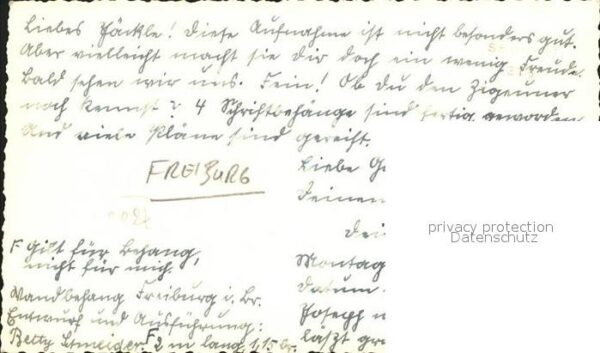 Liebes Päckle! Diese Aufnahme ist nicht besonders gut.
Aber vielleicht macht sie dir doch ein wenig Freude.
Bald sehen wir uns. Fein! Ob du den Zigeuner
noch kennst? 4 Schriftbehänge sind fertig geworden
Und viele Pläne sind gereift.
FREIBURG
Liebe G
Deinen
dei
Montag
Datum
Joseph
läßt gr
F Gilt für Behang,
nicht für mich.
Wandbehang Freiburg i. Br.
Entwurf und Ausführung:
Betty Schneider. F 2 m lang 1,15 br.
privacy protection
Datenschutz